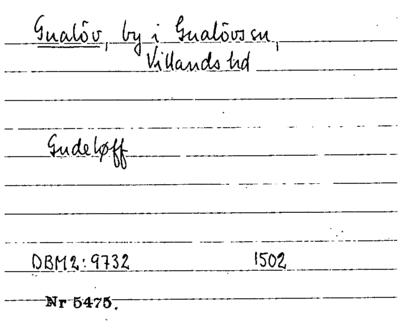 Gualöv, by i Gualövs sn,
Villands hd
Gudeløff
DBM2:9732 1502
Nr 5475.